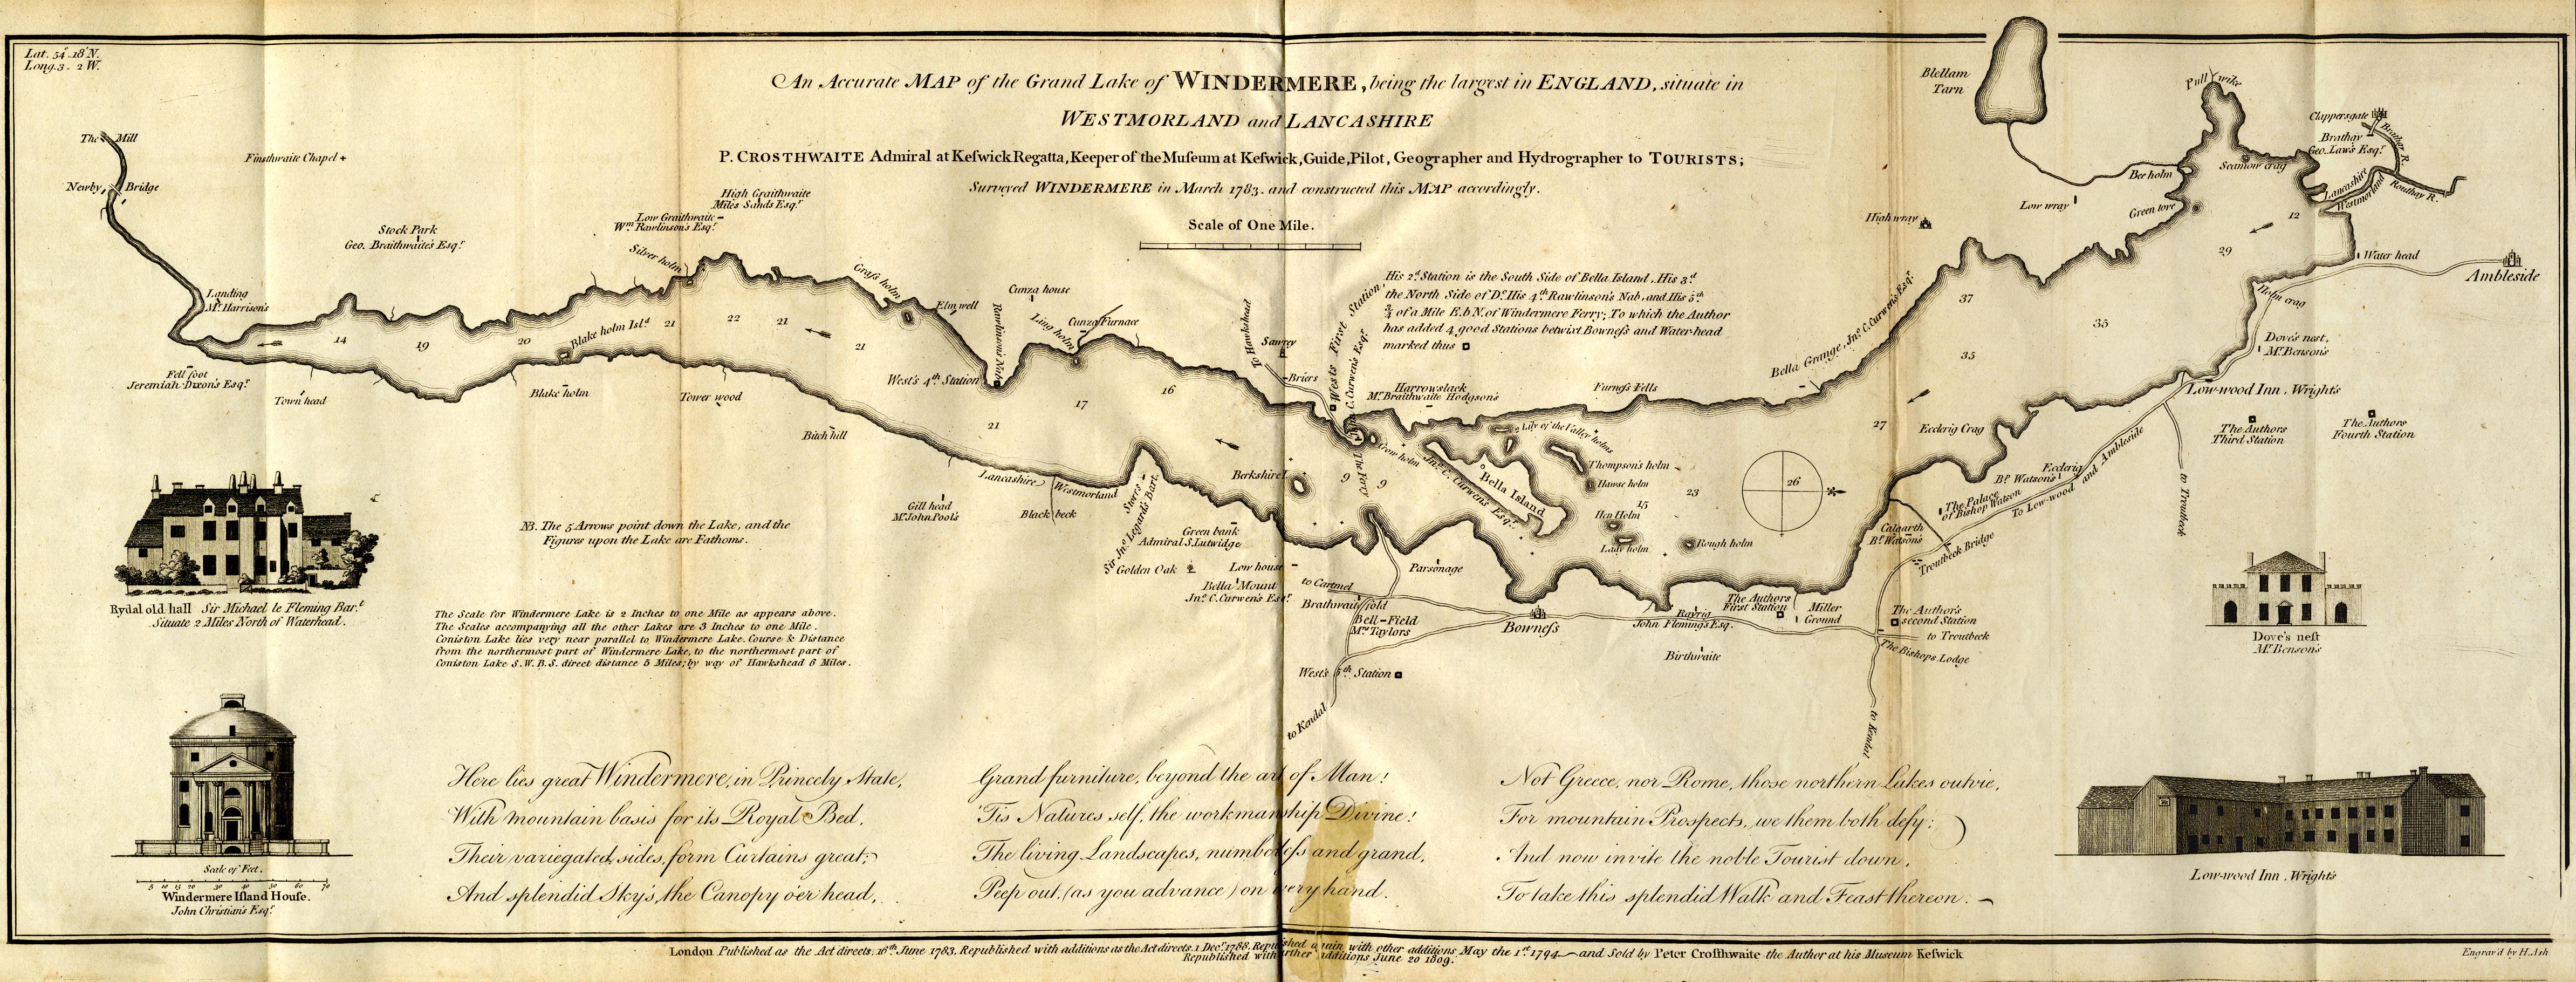 Lat. 54°-18'N.
Long. 3-2 W.
An Accurate MAP of the Grand Lake of WINDERMERE, being the largest in ENGLAND, situate in
WESTMORLAND and LANCASHIRE
P. CROSTHWAITE Admiral at Keſwick Regatta, Keeper of the Muſeum at Keſwick, Guide, Pilot, Geographer and Hydrographer to TOURISTS;
Surveyed WINDERMERE in March 1783. and constructed this MAP accordingly.
Scale of One Mile.
His 2d Station is the South Side of Bella Island, His 3d
the North Side of Do. His 4th Rawlinson's Nab, and His 5th
¾ of a Mile E.b N. of Windermere Ferry; To which the Author
has added 4 good Stations betwixt Bowneſs and Water-head
marked thus
The Mill
Newby Bridge
Finsthwaite Chapel +
Stock Park
Geo. Braithwaite's Esqr.
High Graithwaite
Miles Sands Esqr.
Low Graithwaite
Wm Rawlinson's Esqr.
Silver holm
Graſs holm
Elm well
Rawlinson's Nab
Cunza house
Ling holm
Cunza Furnace
To Hawkshead
Sawrey
Briers
Wests First Station
Jno. C. Curwen's Esqr.
Harrowslack
Mr. Braithwaite Hodgson's
Furneſs Fells
Bella Grange, Jno. C. Curwens Esqr.
High wray
Low wray
Blellam
Tarn
Pull wike
Bee holm
Green tove
Seamow crag
Clappersgate
Brathay
Geo. Law's Esqr.
Brathay R.
Lancashire
Westmorland
Routhay R.
Water head
Ambleside
Holm crag
Dove's nest,
Mr. Benson's
Low-wood Inn, Wright's
The Authors
Third Station
The Authors
Fourth Station
Landing
Mr. Harrison's
Fell foot
Jeremiah Dixon's Esqr.
Town head
14
19
20
Blake holm Isld.
21
22
21
21
Blake holm
Tower wood
Birch hill
West's 4th Station
21
17
16
Lancashire
Westmorland
Black beck
Gill head
Mr. John Pool's
Storrs
Sir Jno. Legard's Bart.
Green bank
Admiral S. Lutwidge
Golden Oak
Low house
Bella Mount
Jno. C. Curwen's Esqr.
Berkshire I.
9
The Ferry
9
Crow holm
Jno. C. Curwens Esqr.
Bella Island
2 Lily of the Valley holms
Thompson's holm
Hawse holm
15
23
Hen Holm
Lady holm
Rough holm
26
27
37
35
35
29
12
Ecclerig Crag
Ecclerig
Bp. Watson's
The Palace
of Bishop Watson
To Low-wood and Ambleside
to Troutbeck
Calgarth
Bp. Watson's
Troutbeck Bridge
Parsonage
to Cartmel
Brathwaite fold
Bell-Field
Mrs. Taylors
West's 5th Station
to Kendal
Bowneſs
Rayrig
John Fleming's Esq.
The Authors
First Station
Miller
Ground
Birthwaite
The Author's
second Station
to Troutbeck
The Bishops Lodge
to Kendal
NB. The 5 Arrows point down the Lake, and the
Figures upon the Lake are Fathoms.
The Scale for Windermere Lake is 2 Inches to one Mile as appears above.
The Scales accompanying all the other Lakes are 3 Inches to one Mile.
Coniston Lake lies very near parallel to Windermere Lake. Course & Distance
from the northermost part of Windermere Lake, to the northermost part of
Coniston Lake S.W.B.S. direct distance 5 Miles; by way of Hawkshead 6 Miles.
Rydal old hall Sir Michael le Fleming Bart.
Situate 2 Miles North of Waterhead.
Scale of Feet.
5 10 15 20 30 40 50 60 70
Windermere Iſland Houſe.
John Christian's Esqr.
Dove's neſt
Mr. Benson's
Low-wood Inn, Wright's
Here lies great Windermere, in Princely State,
With mountain basis for its Royal Bed,
Their variegated sides, form Curtains great;
And splendid Sky's, the Canopy o'er head,
Grand furniture, beyond the art of Man!
'Tis Natures self, the workmanship Divine!
The living Landscapes, numberleſs and grand,
Peep out, (as you advance) on every hand.
Not Greece, nor Rome, those northern Lakes outvie,
For mountain Prospects, we them both defy;
And now invite the noble Tourist down,
To take this splendid Walk and Feast thereon.
London Published as the Act directs, 16th June 1783. Republished with additions as the Act directs. 1 Decr. 1788. Republished again with other additions May the 1st 1794 and Sold by Peter Croſthwaite the Author at his Museum Keſwick
Republished with further additions June 20 1809.
Engrav'd by H. Ash